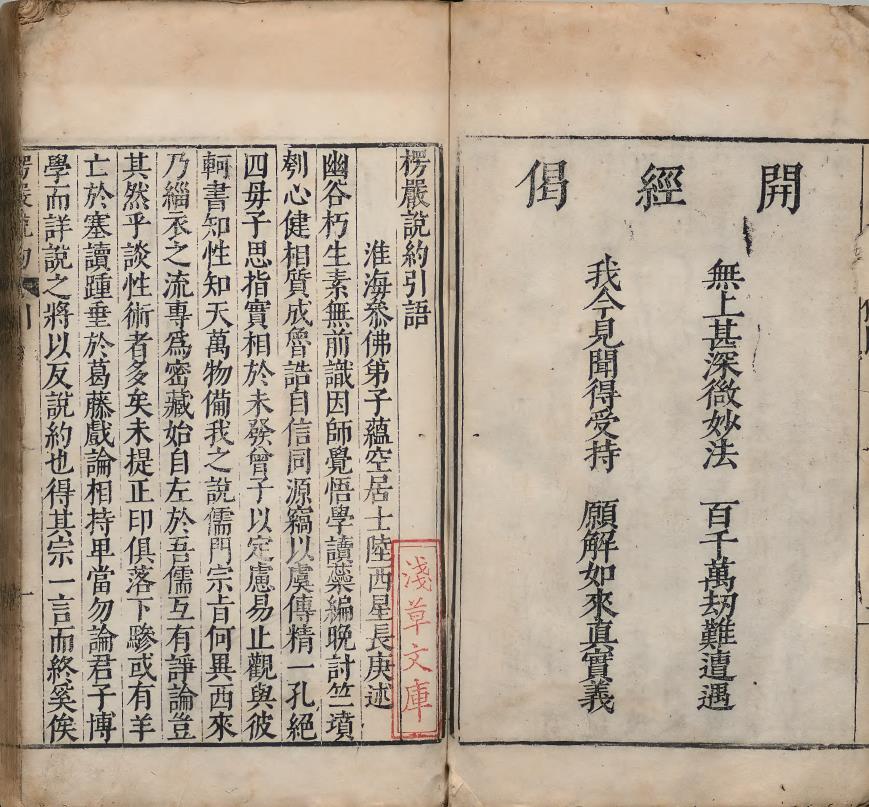 開經偈
無上甚深微妙法　百千萬劫難遭遇
我今見聞得受持　願解如來真實義
楞嚴說約引語
淮海叅佛弟子蘊空居士陸西星長庚述
幽谷朽生素無前識因師覺悟學讀藥編晚討竺墳
刳心健相質成魯誥自信同源竊以虞傳精一孔絕
四毋子思指實相於未發曾子以定慮易止觀與彼
軻書知性知天萬物備我之說儒門宗旨何異西來
乃緇衣之流專為密藏始自左於吾儒互有諍論豈
其然乎談性術者多矣未提正印俱落下驂或有羊
亡於塞讀踵垂於葛藤戲論相持卑當勿論君子博
學而詳說之將以反說約也得其宗一言而終奚俟
楞嚴說約 引 一
淺草文庫